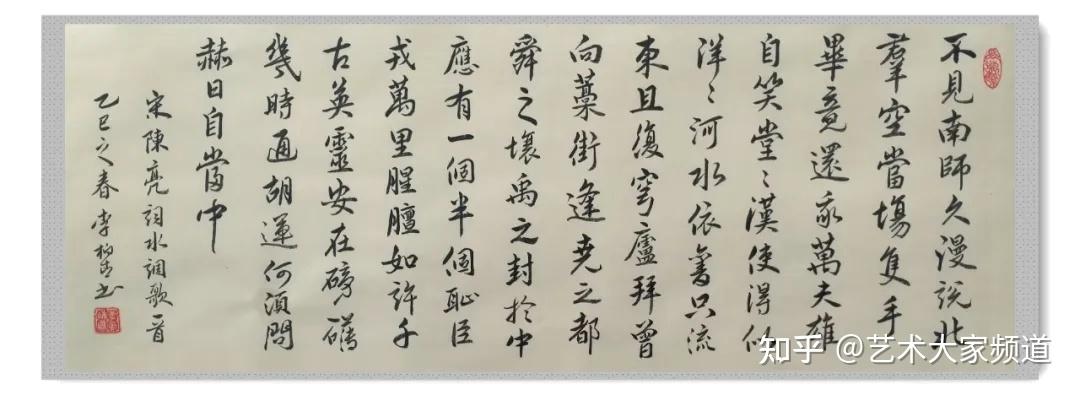 不見南師久漫說北
羣空當場隻手
畢竟還我萬夫雄
自笑堂〻漢使得似
洋〻河水依舊只流
東且復穹廬拜曾
向藁街逢堯之都
舜之壤禹之封於中
應有一個半個恥臣
戎萬里腥膻如許千
古英靈安在磅礴
幾時通胡運何須問
赫日自當中
宋陳亮詞水調歌一首
乙巳之春李柏书
知乎 @艺术大家频道